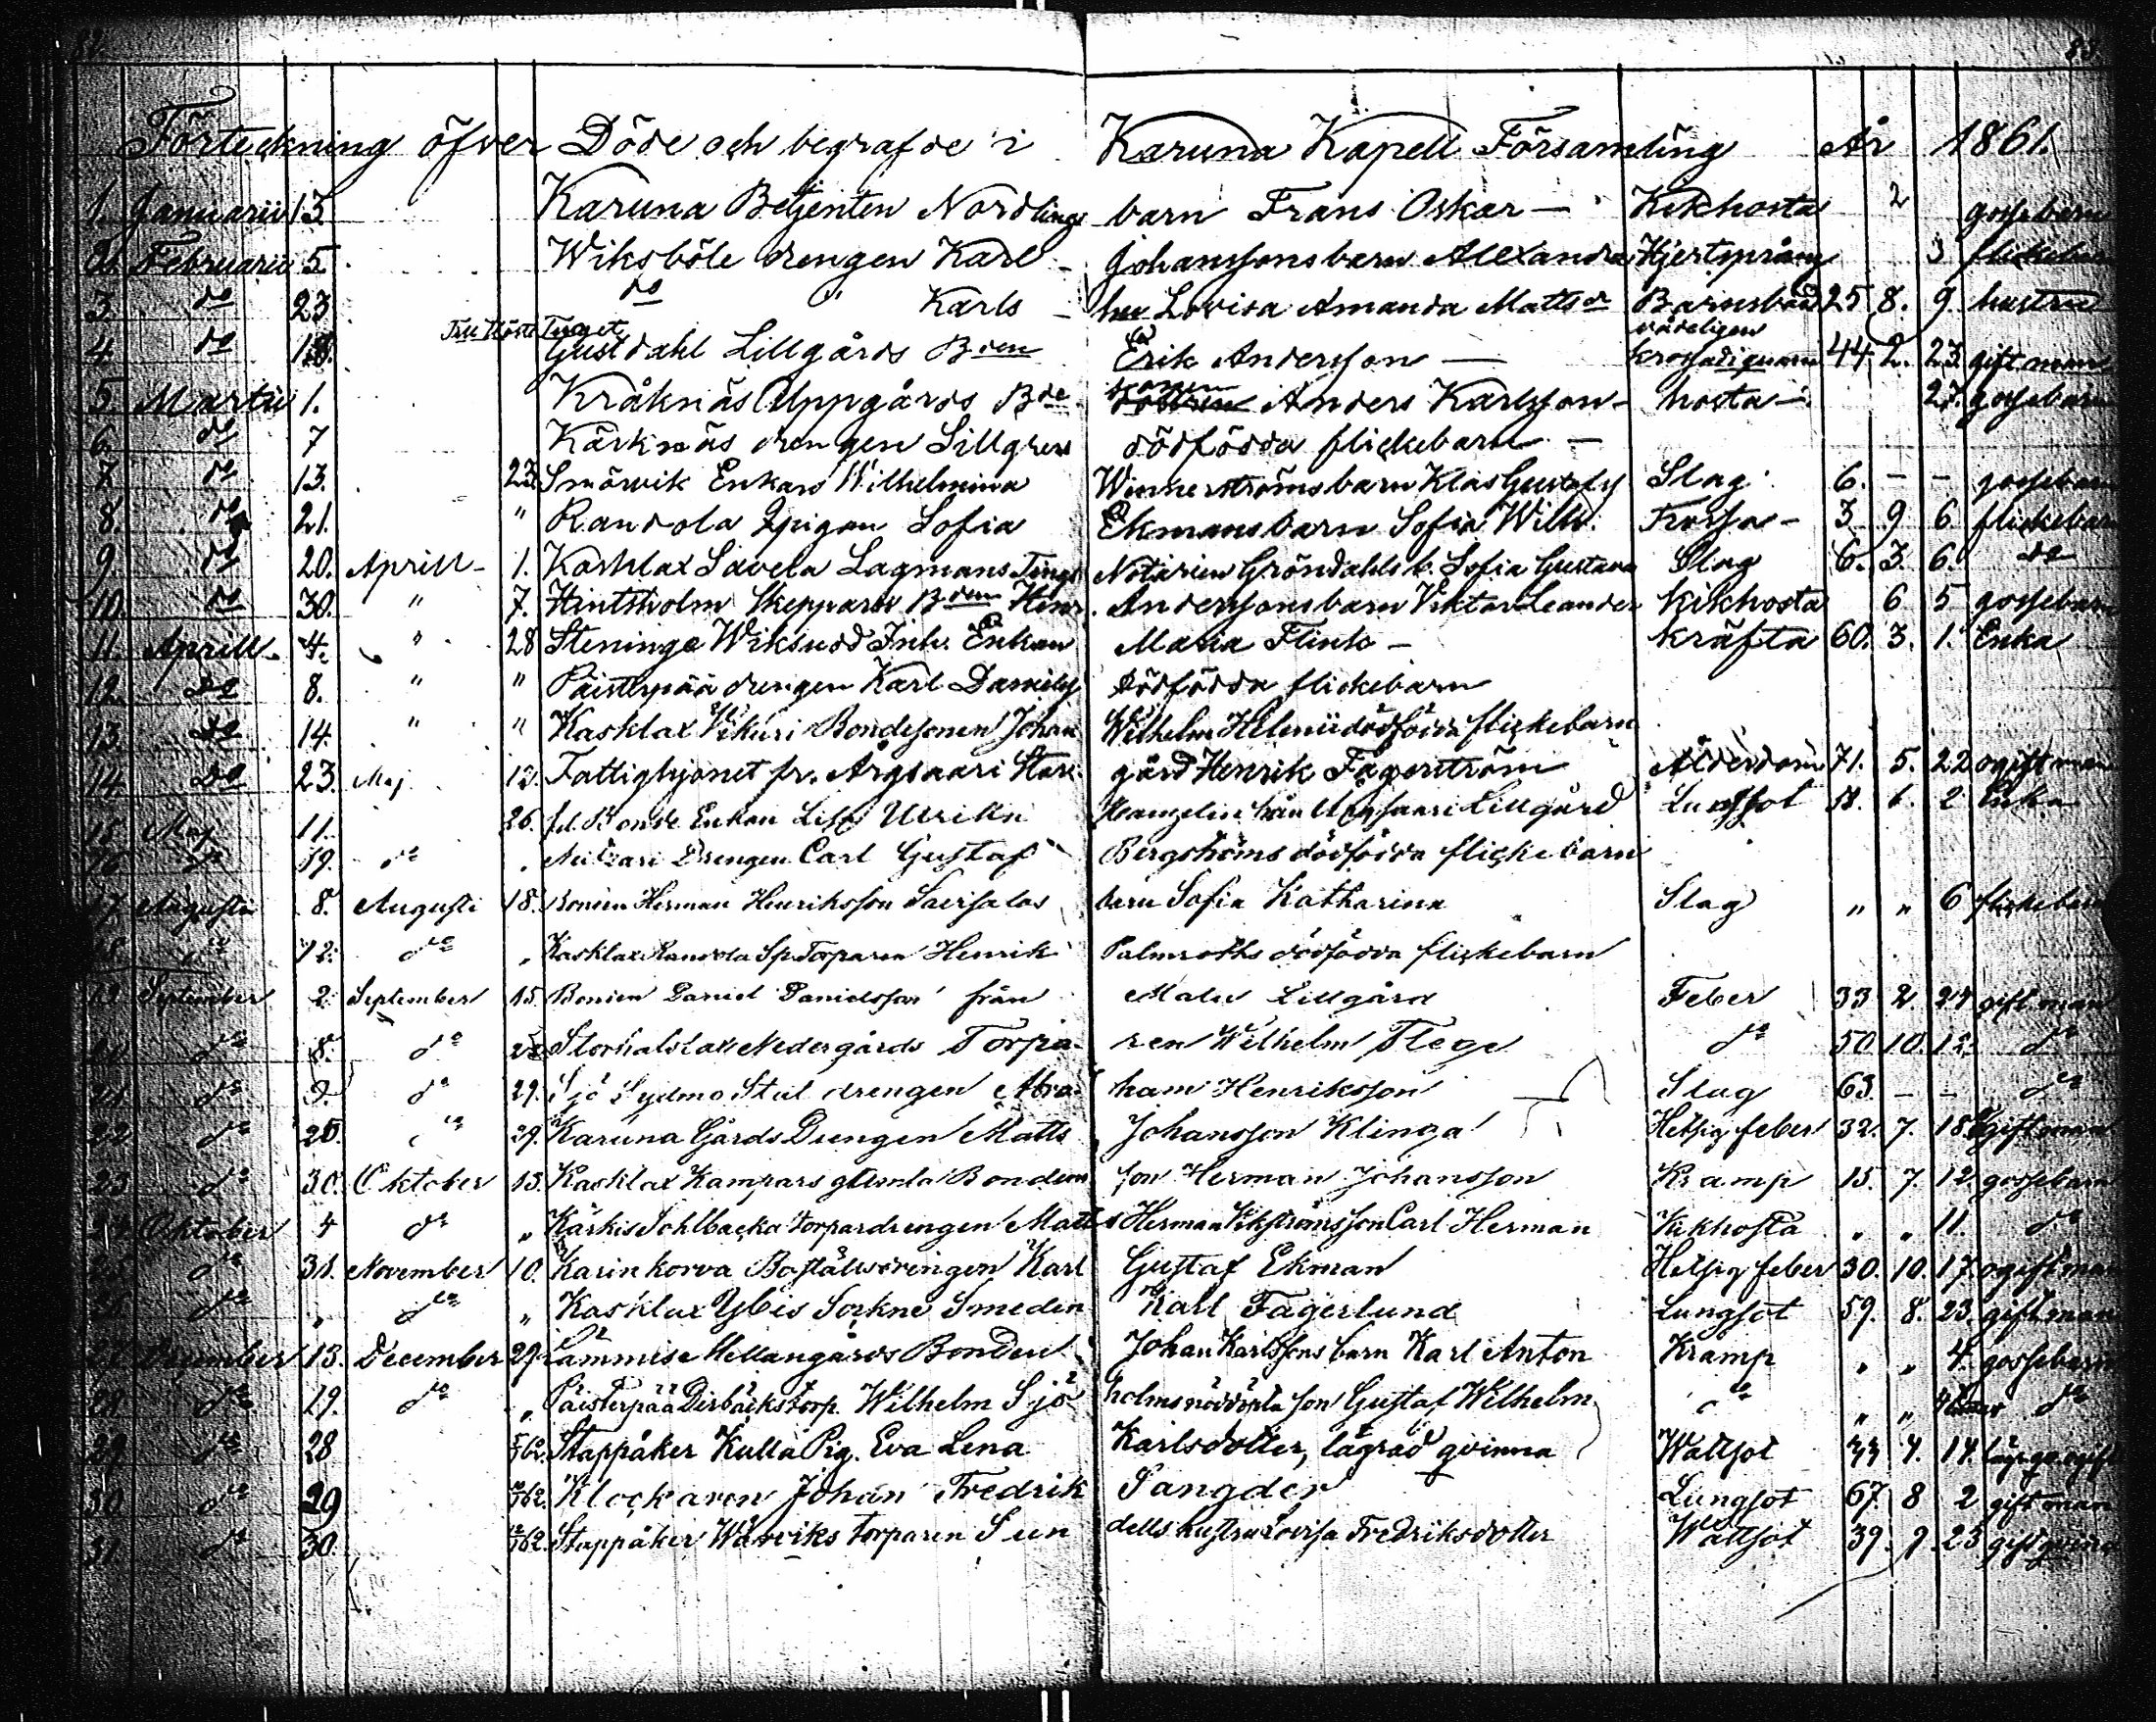 82.
83.
Förteckning öfver Döde och begrafde i Karuna Kapell Församling År 1861.
1. Januarii 13. Karuna Betjenten Nordlings barn Frans Oskar — Kikhosta 2 gossebarn
2. Februarii 5. Wiksböle drengen Karl Johanssons barn Alexandra Hjertsprång 3 flickebarn
3. do 23 do " Karls hu Lovisa Amanda Mattsdr Barnsbörd 25 8. 9. hustru
4. do 18. Gustdahl Lillgårds Bden Erik Andersson — vådeligen krossad i quarn 44. 2. 23. gift man
5. Martii 1. Kråknäs Uppgårds Bde sonen Anders Karlsson — hosta — 27. gossebarn
6. do 7 Kärknäs drengen Lillgrens dödfödda flickebarn —
7. do 13. 23. Smörvik Enkans Wilhelmina Winnerströms barn Klas Gustafs Slag 6. — — gossebarn
8. do 21. " Randola Pigan Sofia Ekmans barn Sofia Wilh. Trossa — 3 9 6 flickebarn
9. do 20. Aprill 1. Kasklax Savela Lagmans Tings Notarien Gröndahls b. Sofia Gustava Slag 6. 3. 6. do
10. do 30. " 7. Hintsholm Skeppars Bden Henr. Anderssons barn Viktor Leander Kikhosta 6 5 gossebarn
11. Aprill 4. " 28 Steninge Wiksudd Inh. Enkan Maria Flink — kräfta 60. 3. 1. Enka
12. do 8. " " Päisterpää drengen Karl Daniels dödfödda flickebarn
13. do 14. " " Kasklax Vikuri Bondesonen Johan Wilhelm Helenii dödfödda flickebarn
14. do 23. Maj 12. Fattighjonet fr. Årgsaari Stor- gård Henrik Fagerström Ålderdom 71. 5. 22 ogift man
15. Maj 11. 26. fd. Bonde Enkan Lisa Ulrika från Lillgård Lungsot 58. 6. 2 Enka
16 do 19. do . Drengen Carl Gustaf Bergströms dödfödda flickebarn
17 Augusti 8. Augusti 18. Bonden Herman Henriksson Savisalos barn Sofia Katharina Slag " " 6 flickebarn
18. do 12. do " Kasklax Randola Sp. Torparen Henrik Palmroths dödfödda flickebarn
19 September 2. September 15. Bonden Daniel Danielsson från Malu Lillgård Feber 33 2. 24 gift man
20 do 8. do 22 Storhalslax Nedergårds Torpa- ren Wilhelm Flege do 50. 10. 12. do
21 do 9. do 29. Sjö Sydmo Stal drengen Abra- ham Henriksson Slag 63. — — do
22 do 25. do 29. Karuna Gårds Drengen Matts Johansson Klinga Hetsig feber 32. 7. 18. gift man
23 do 30. Oktober 13. Kasklax Kampars gamla Bonden son Herman Johansson Kramp 15. 7. 12. gossebarn
24 Oktober 4 do " Kärkis Sohlbacka torpardrengen Matts Herman Vikströms son Carl Herman Kikhosta " " 11. do
25 do 31. November 10. Karinkorva Boställsdrengen Karl Gustaf Ekman Hetsig feber 30. 10. 17. ogift man
26 do " do " Kasklax Ylis Sockne Smeden Karl Fagerlund Lungsot 59. 8. 23. gift man
27 December 13. December 29. Lammise Mellangårds Bonden Johan Karlssons barn Karl Anton Kramp " " 4. gossebarn
28. do 19. do " Päisterpää Dirbäcks torp. Wilhelm Sjö- holms nöddöpta son Gustaf Wilhelm do " " do
29 do 28 Stappåker Kulla Pig. Eva Lena Karlsdotter, lägrad qvinna Wattsot 4. 14.
30 do 29 Klockaren Johan Fredrik Sangder Lungsot 67. 8 2 gift man
31 do 30. Stappåker Wårviks torparen Sun dells hustru Lovisa Fredriksdotter Wattsot 39. 9. 23 gift qvinna